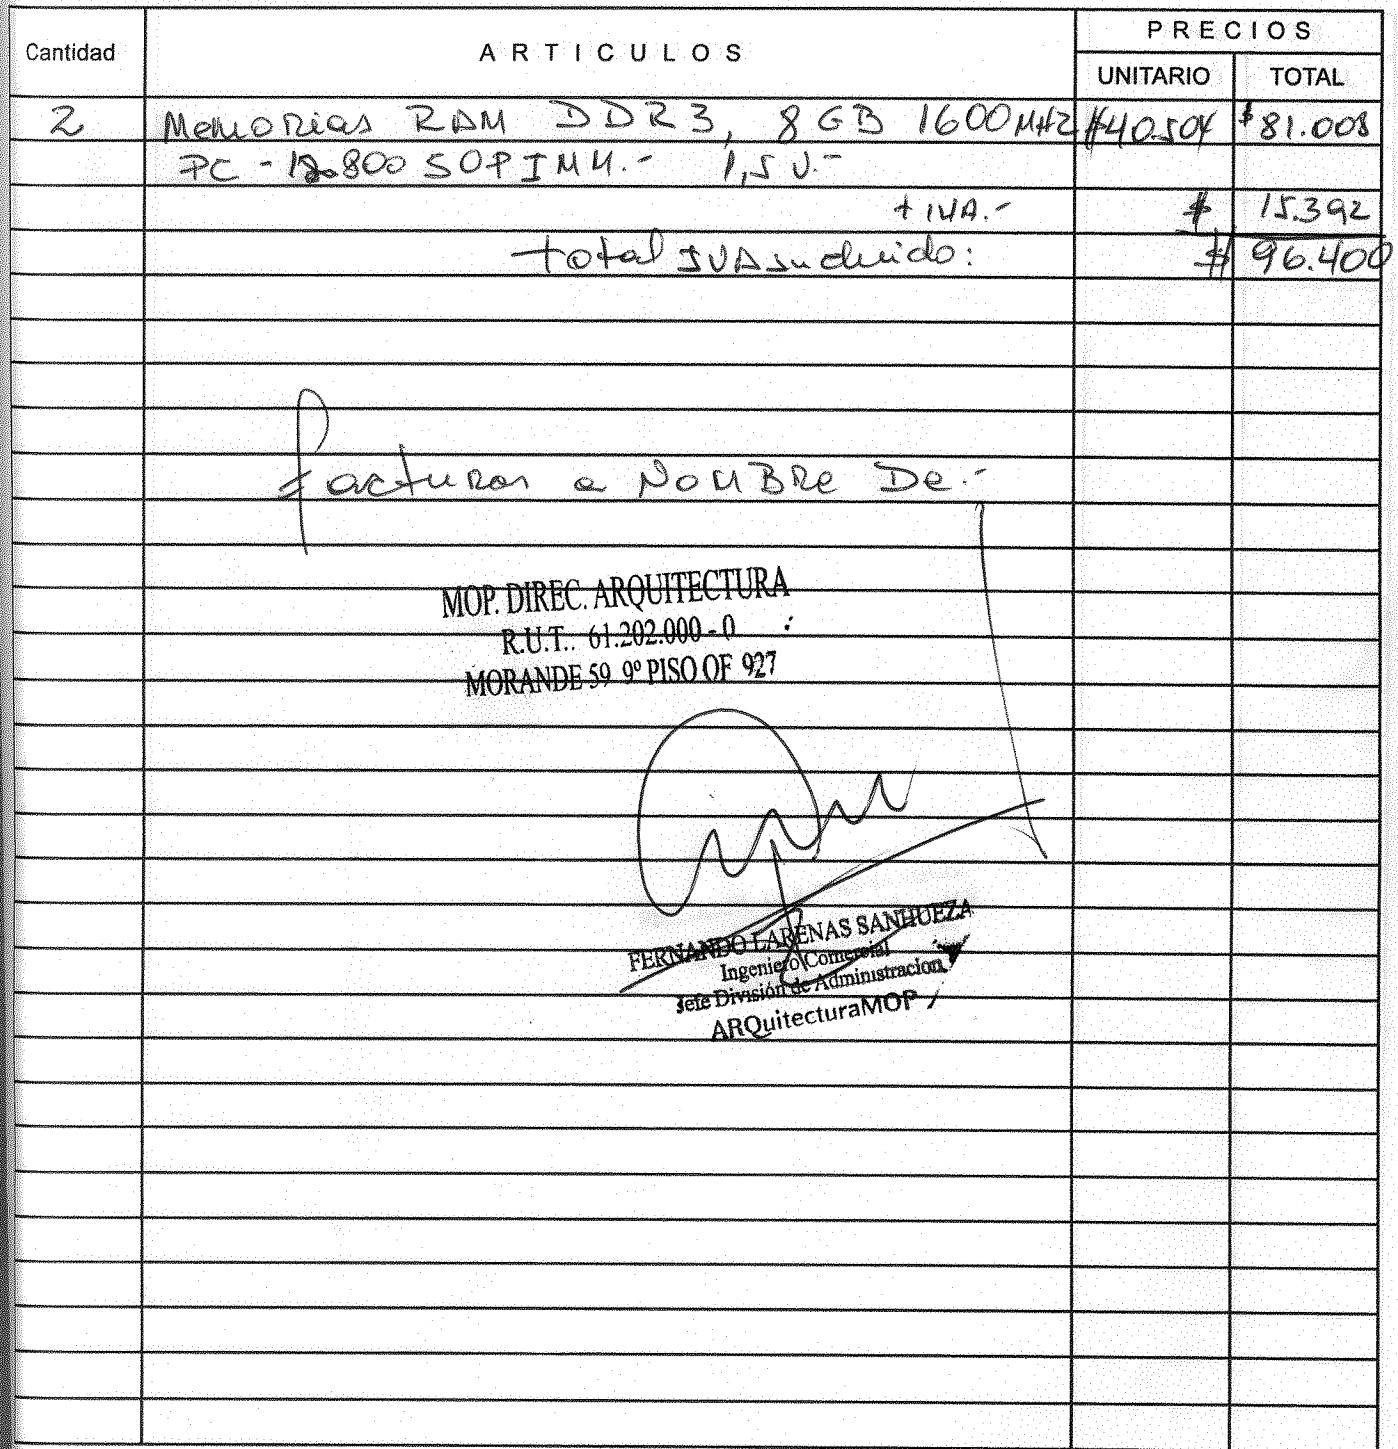 PRECIOS
Cantidad ARTICULOS UNITARIO TOTAL
2 Memorias RAM DDR3, 8 GB 1600 MHZ $40.504 $81.008
PC-12800 SODIMM.- 1,5 V.-
+ IVA.- $ 15.392
total IVA incluido: $ 96.400
facturar a NOMBRE De.-
MOP. DIREC. ARQUITECTURA
R.U.T.. 61.202.000 - 0
MORANDE 59 9º PISO OF 927
FERNANDO LARENAS SANHUEZA
Ingeniero Comercial
Jefe División de Administracion
ARQuitecturaMOP